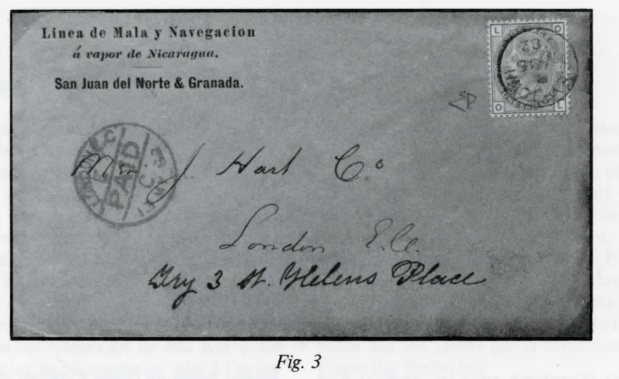 Linea de Mala y Navegacion
á vapor de Nicaragua.
San Juan del Norte & Granada.
L O
O L
LONDON E.C
PAID
J. Hart Co
London E.C.
Try 3 St. Helens Place
Fig. 3